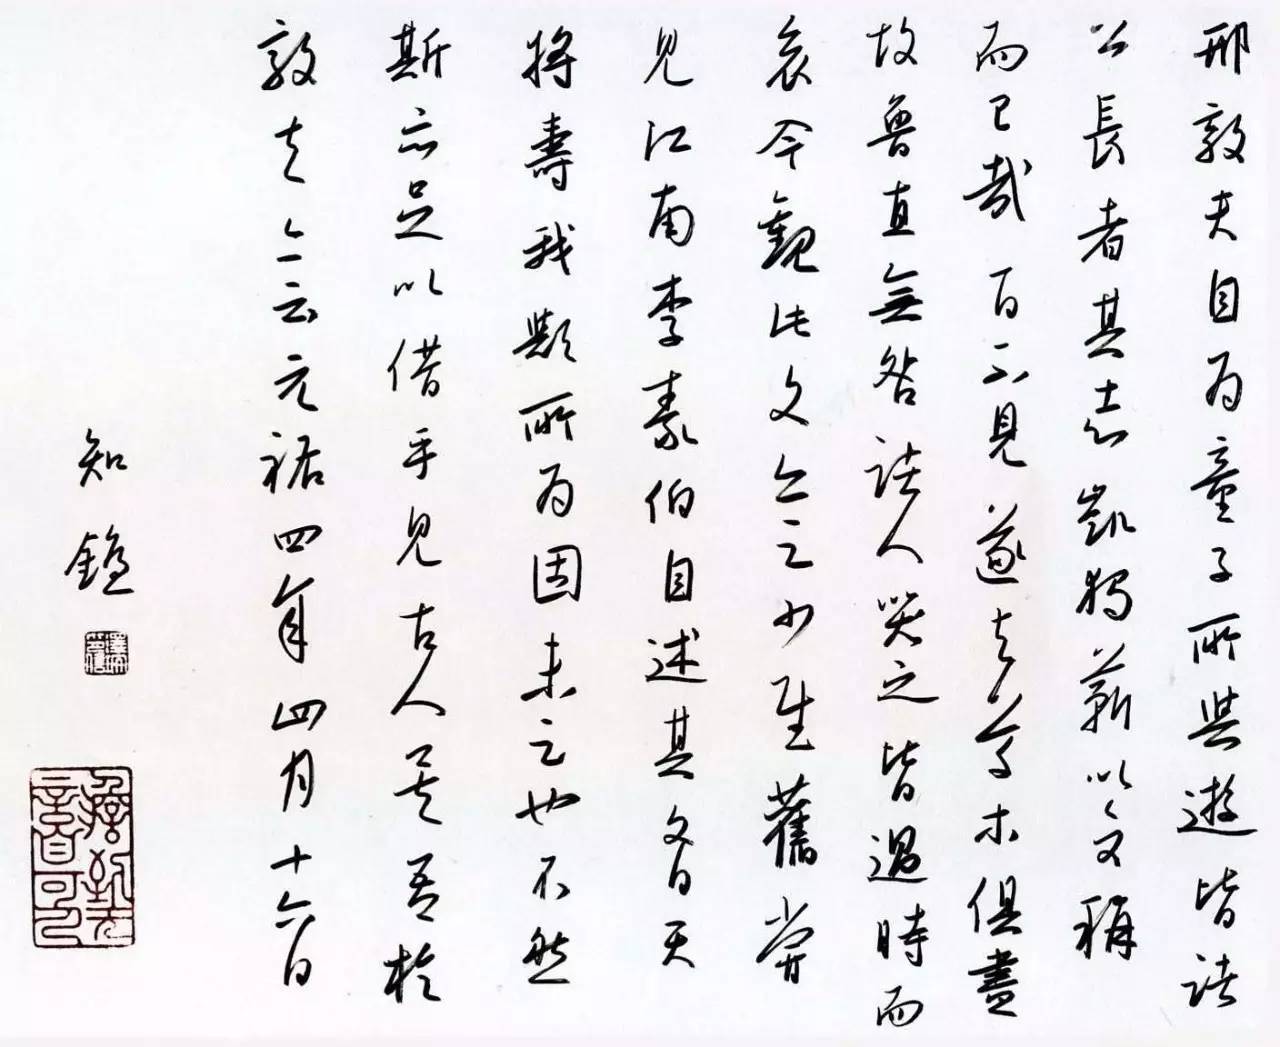 邢敦夫自為童子所與遊皆諸
公長者其志凱獨蘄以文稱
而已哉一日不見遂與草木俱盡
故魯直無咎諸人哭之皆過時而
哀今觀此文亦足少慰舊嘗
見江南李泰伯自述其文曰天
將壽我歟所為固未足也不然
斯亦足以借手見古人矣吾於
敦夫亦云元祐四年四月十六日
知